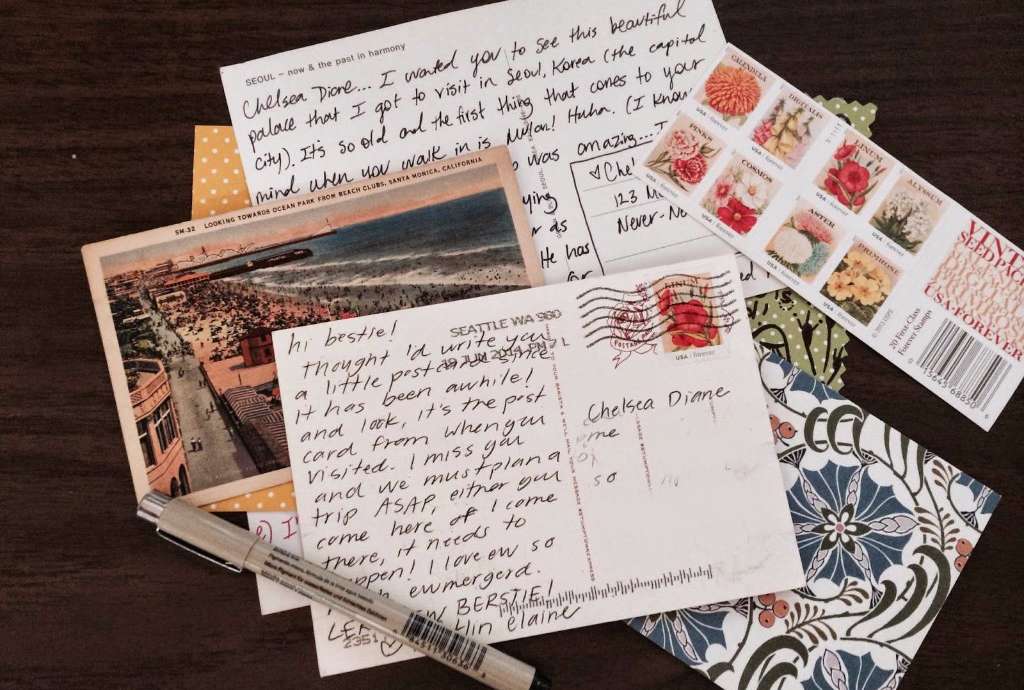 SEOUL – now & the past in harmony
Chelsea Dione... I wanted you to see this beautiful
palace that I got to visit in Seoul, Korea (the capitol
city). It's so old and the first thing that comes to your
mind when you walk in is Mulan! Huha. (I know
was amazing... I
ying
as
He has
for
Che
123 M
Never-Ne
SM-32 LOOKING TOWARDS OCEAN PARK FROM BEACH CLUBS, SANTA MONICA, CALIFORNIA
CALENDULA
DIGITALIS
LINUM
ALYSSUM
PINKS
COSMOS
ASTER
PRIMROSE
USA Forever
USA Forever
USA Forever
USA Forever
USA Forever
USA Forever
USA Forever
VINT
SEED PAC
USA FOREVER
20 First-Class
Forever Stamps
hi bestie!
thought I'd write you
a little postcard since
it has been awhile!
and look, it's the post
card from when you
visited. I miss you
and we must plan a
trip ASAP, either you
come here or I come
there, it needs to
happen! I love ew so
ewmergerd.
BERSTIE!
elaine
2351
SEATTLE WA 980
JUN 2014 PM L
LINUM
USA Forever
Chelsea Diane
me
so